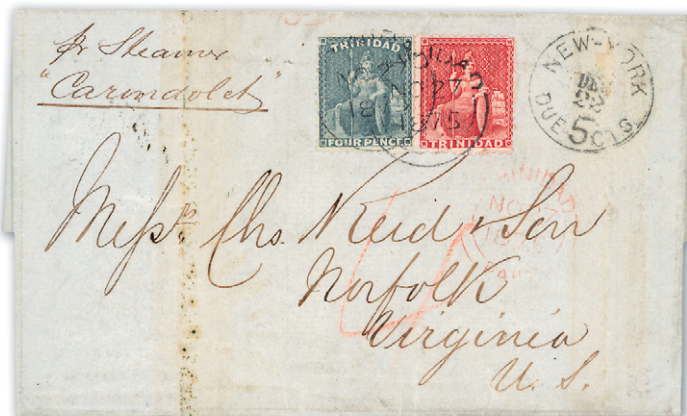 pr Steamer
"Carondolet"
TRINIDAD
FOUR PENCE
TRINIDAD
TRINIDAD
NO 27
1875
NEW-YORK
DEC
22
DUE 5 CTS.
TRINIDAD
NO 27
18
PAID
4
Messrs. Chs. Reid & Son
Norfolk
Virginia
U. S.